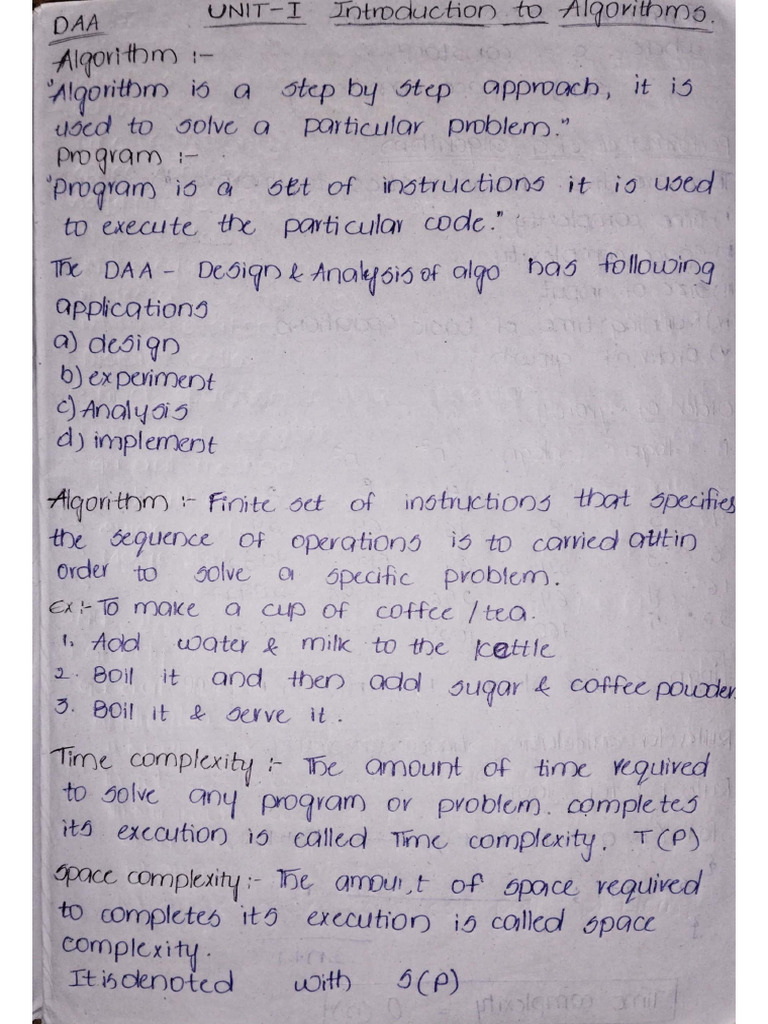 DAA UNIT-I Introduction to Algorithms.
Algorithm :-
"Algorithm is a step by step approach, it is
used to solve a particular problem."
Program :-
"Program" is a set of instructions it is used
to execute the particular code."
The DAA - Design & Analysis of algo has following
applications
a) design
b) experiment
c) Analysis
d) implement
Algorithm :- Finite set of instructions that specifies
the sequence of operations is to carried out in
order to solve a specific problem.
Ex:- To make a cup of coffee / tea.
1. Add water & milk to the kettle
2. Boil it and then add sugar & coffee powder.
3. Boil it & serve it.
Time complexity :- The amount of time required
to solve any program or problem. completes
its execution is called Time complexity. T(P)
Space complexity:- The amount of space required
to completes its execution is called space
complexity.
It is denoted with S(P)